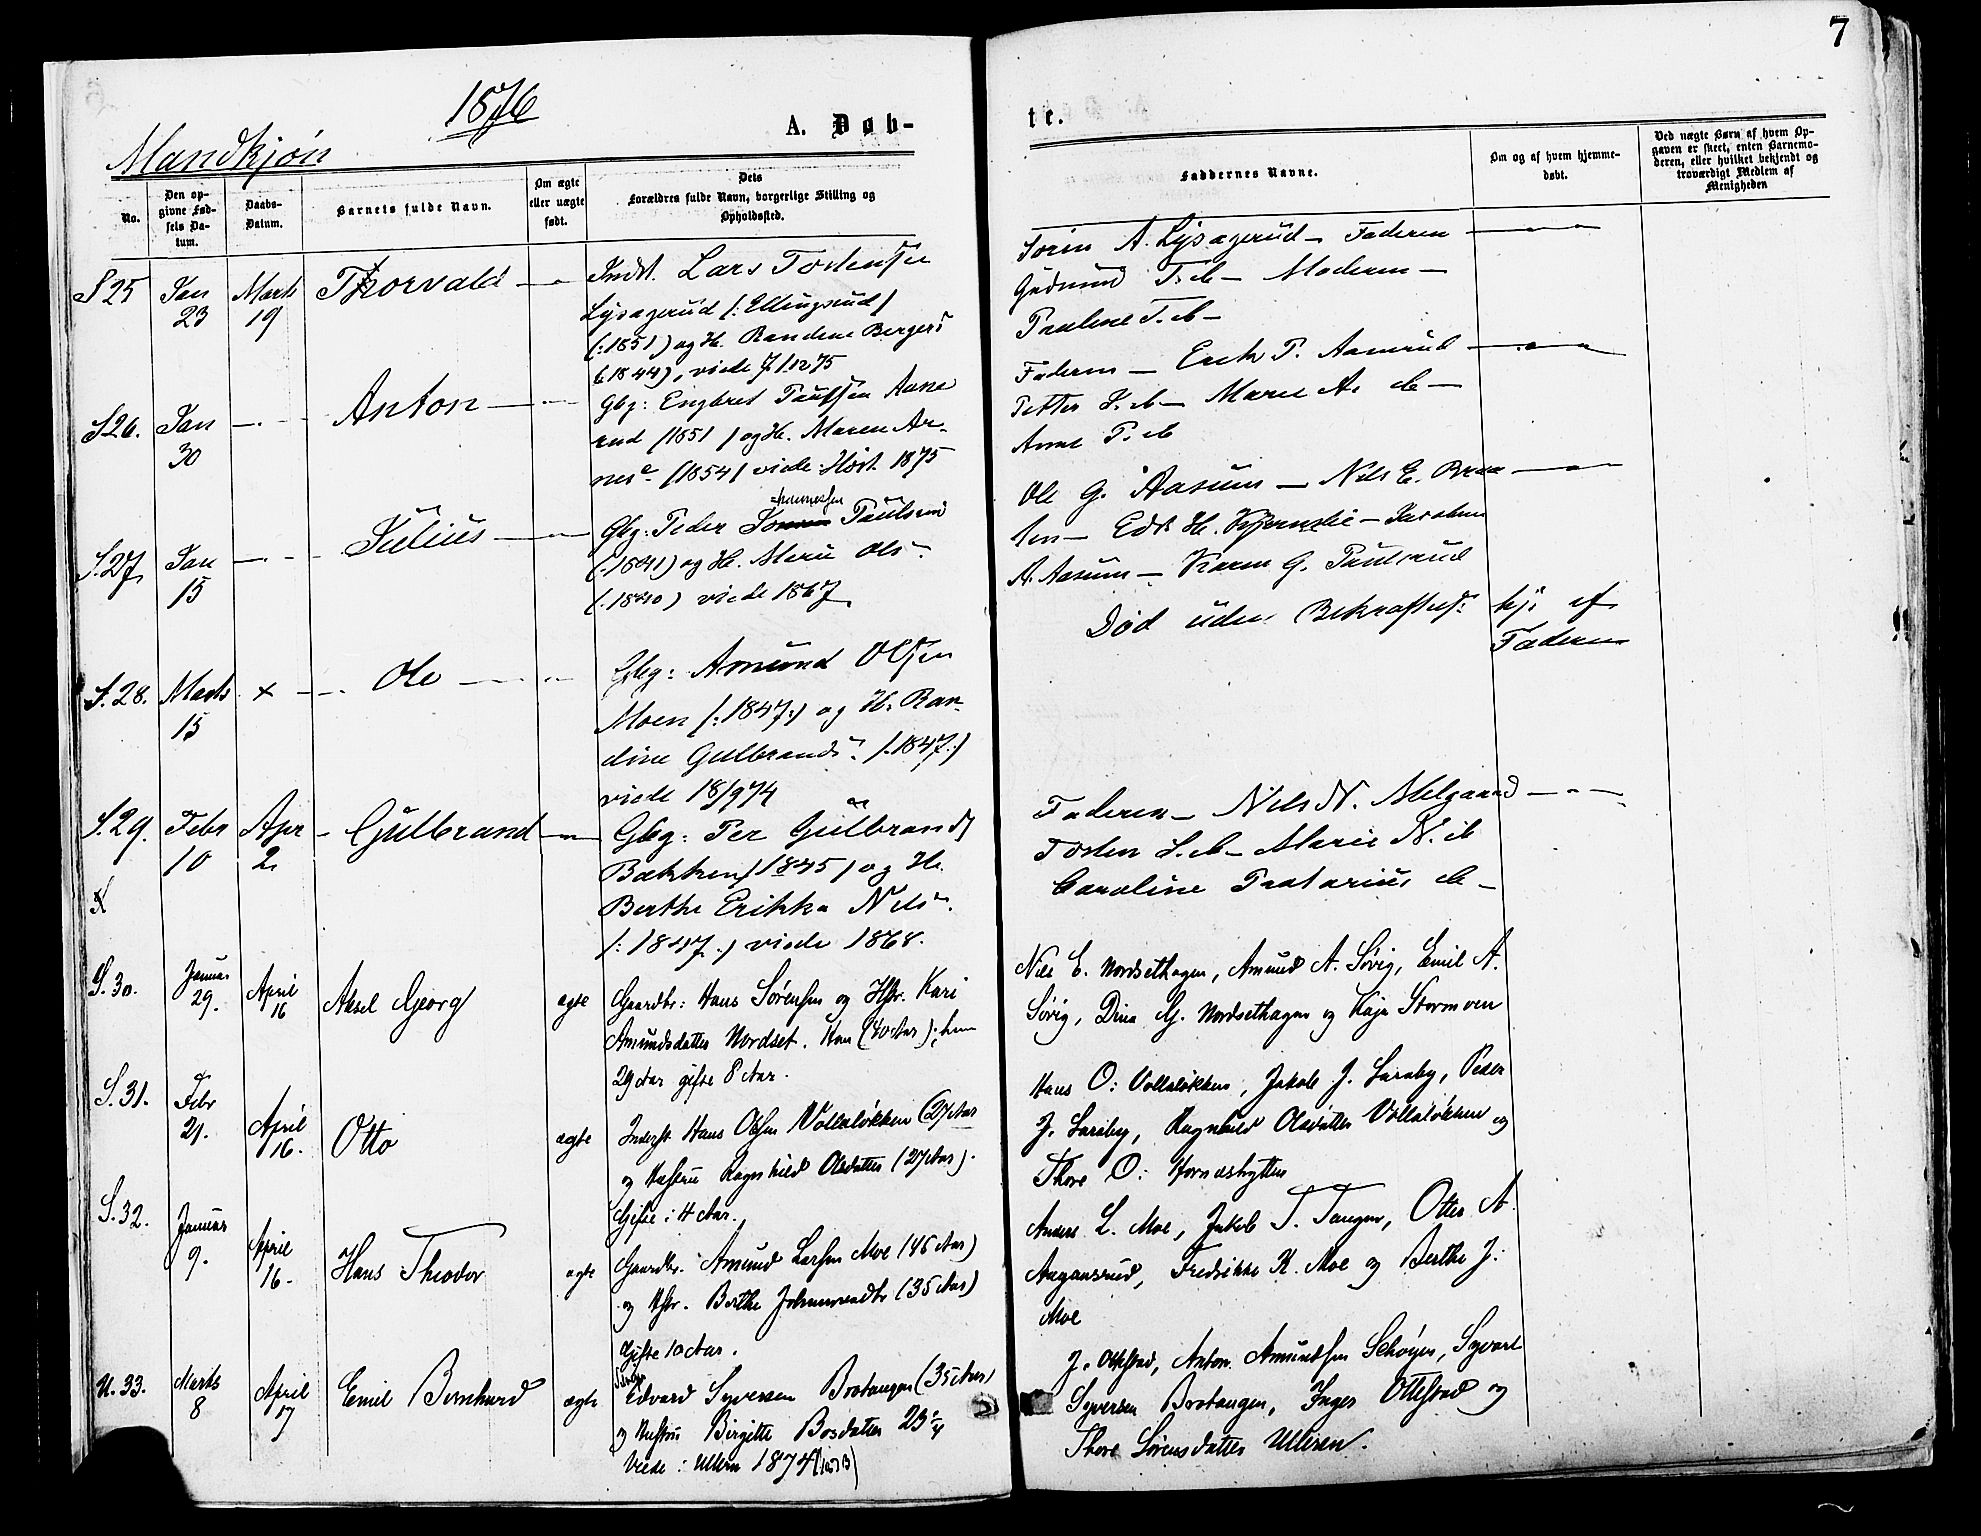 7
1876
A. Døb-
te.
Mandkjøn
No.
Den op-
givne Fød-
sels Da-
tum.
Daabs-
Datum.
Barnets fulde Navn.
Om ægte
eller uægte
født.
Dets
Forældres fulde Navn, borgerlige Stilling og
Opholdssted.
Faddernes Navne.
Om og af hvem hjemme-
døbt.
Ved uægte Børn af hvem Op-
gaven er skeet, enten Barnemo-
deren, eller hvilket bekjendt og
troværdigt Medlem af
Menigheden
S 25
Jan
23
Marts
19
Thorvald
Indst. Lars Tostensen
Lysagerud (: Ellingsrud)
(: 1851) og H. Randine Bergers
(: 1844), viede
A. Lysagerud - Faderen
Gudmund T. do - Moderen -
Pauline T. do -
S 26.
Jan
30
Anton
Gbg: Engbret Paulsen Aame
rud (1851) og H. Maren Ar-
nesd (1854) viede Høst 1875
Faderen - Erik P. Aamrud
Petter do - Marie A. do -
Anne P. do
S. 27
Jan
15
Julius
Gbg: Peder Johannessen Paulsrud
(: 1841) og H. Marie Olsd
(: 1840) viede 1867
Ole G. Aasum - Nils E. Braa
ten - Edv H. - Jacobine
A. Aasum - Karen G. Paulsrud
S. 28.
Marts
15
x
Ole
Gbg: Amund Olsen
Moen (: 1847:) og H. Ran-
dine Gulbrandsd. (: 1847:)
viede 18/9 74
Død uden Bekræftelse:
hj: af
Faderen
S. 29.
Febr
10
Apr
2
Gulbrand
Gbg: Per Gulbrands
Bækken (1845) og H.
Berthe Erikka Nilsd.
(: 1847:) viede 1868.
Faderen - Nils N. Melgaard
Tosten do - Marie N. do
Caroline do -
S. 30.
Januar
29.
April
16
Aksel Georg
ægte
Gaardbr: Hans Sørensen og Hstr. Kari
Amundsdatter Nordset. Han (40 Aar); hun
29 Aar gifte 8 Aar.
Nils E. Nordsethagen, Amund A. Sørig, Emil A.
Sørig, Dina G. Nordsethagen og Kaja Stormoen
S. 31.
Febr
21.
April
16.
Otto
ægte
Inderst Hans Olsen Vollaløkken (27 Aar
og Hustru Ragnhild Olsdatter (27 Aar).
Gifte i 4 Aar.
Hans O: Vollaløkken, Jakob J. Larsby, Peder
J. Larsby, Ragnhild Olsdatter Vollaløkken og
Thore O:
S. 32.
Januar
9.
April
16.
Hans Theodor
ægte
Gaardbr. Amund Larsen Moe (45 Aar)
og Hstr. Berthe Johannesdtr (35 Aar)
Gifte 10 Aar.
Anders L. Moe, Jakob T. Tangen, Otter A.
Fredrikke K. Moe og Berthe J:
Moe
U. 33.
Marts
8
April
17
Emil Bernhard
ægte
Edvard Syversen Brotangen (35 Aar)
og Hustru Birgitte Bosdatter 23
Viede i Ullern 1874
J. Ottestad, Anton Amundsen Schøyen, Syvert
Syversen Brotangen, Inger Ottestad og
Thore Sørensdatter Ulleren.